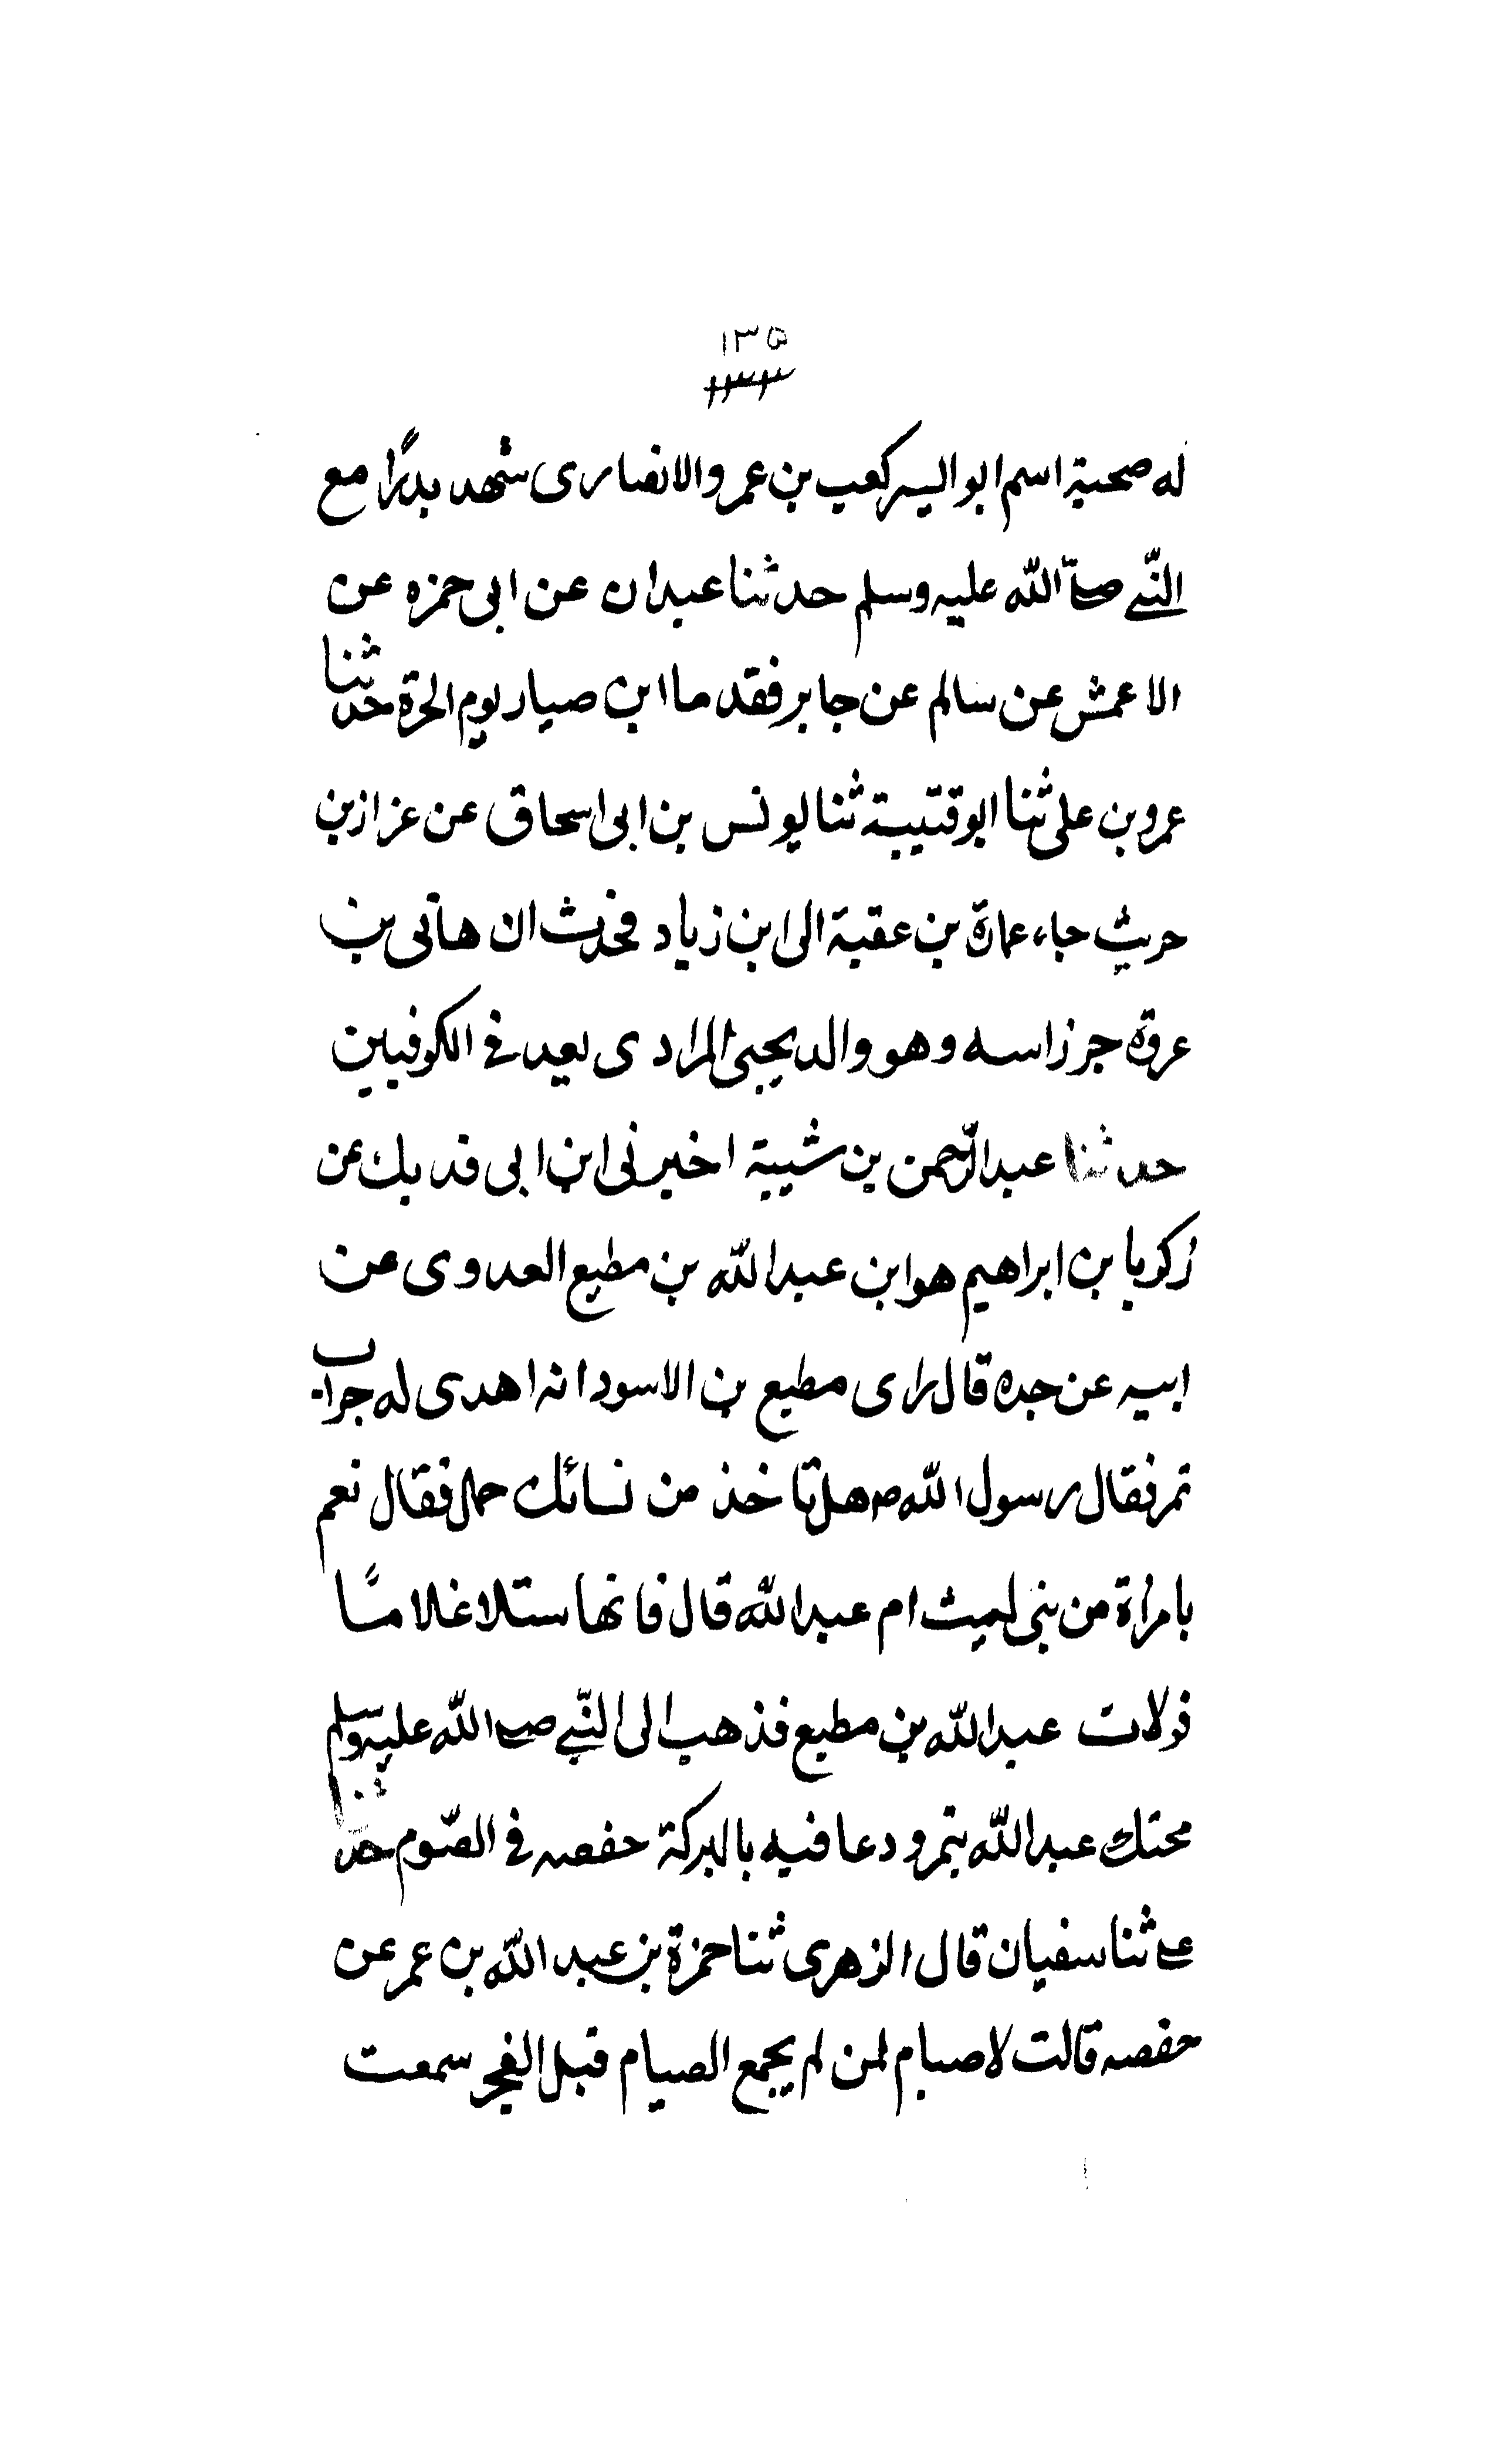 ١٣٥
١٣٣
له صحبة اسم ابو اليسر كعب بن عمرو الانصارى شهد بدرًا مع
النّبى صلى الله عليه وسلم حدثنا عبدان عن ابى حمزه عن
الاعمش عن سالم عن جابر فقد ما ابن صياد يوم الحرة حدثنا
عمرو بن على ثنا ابو قتيبة ثنا يونس بن ابى اسحاق عن عزاز بن
حريث جاء عمارة بن عقبة الى ابن زياد فحدث ان هانى بن
عروة جز راسه وهو والد يحيى المرادى يعد فى الكوفيين
حدثنا عبد الرّحمن بن شيبة اخبرنى ابن ابى فديك عن
زكريا بن ابراهيم هو ابن عبد الله بن مطيع العدوى عن
ابيه عن جده قال راى مطيع بن الاسود انه اهدى له جراب
تمر فقال رسول الله ص هل تاخذ من نسائك حمل فقال نعم
بامراة من بنى ليث ام عبد الله قال فانها ستلا غلامًا
فولات عبد الله بن مطيع فذهب الى النّبى صلى الله عليه وسلم
محنك عبد الله بتمر ودعا فيه بالبركة حفصه فى الصّوم حدثنا
على ثنا سفيان قال الزهرى ثنا حمزة بن عبد الله بن عمر عن
حفصه قالت لا صيام لمن لم يجمع الصيام قبل الفجر سمعت